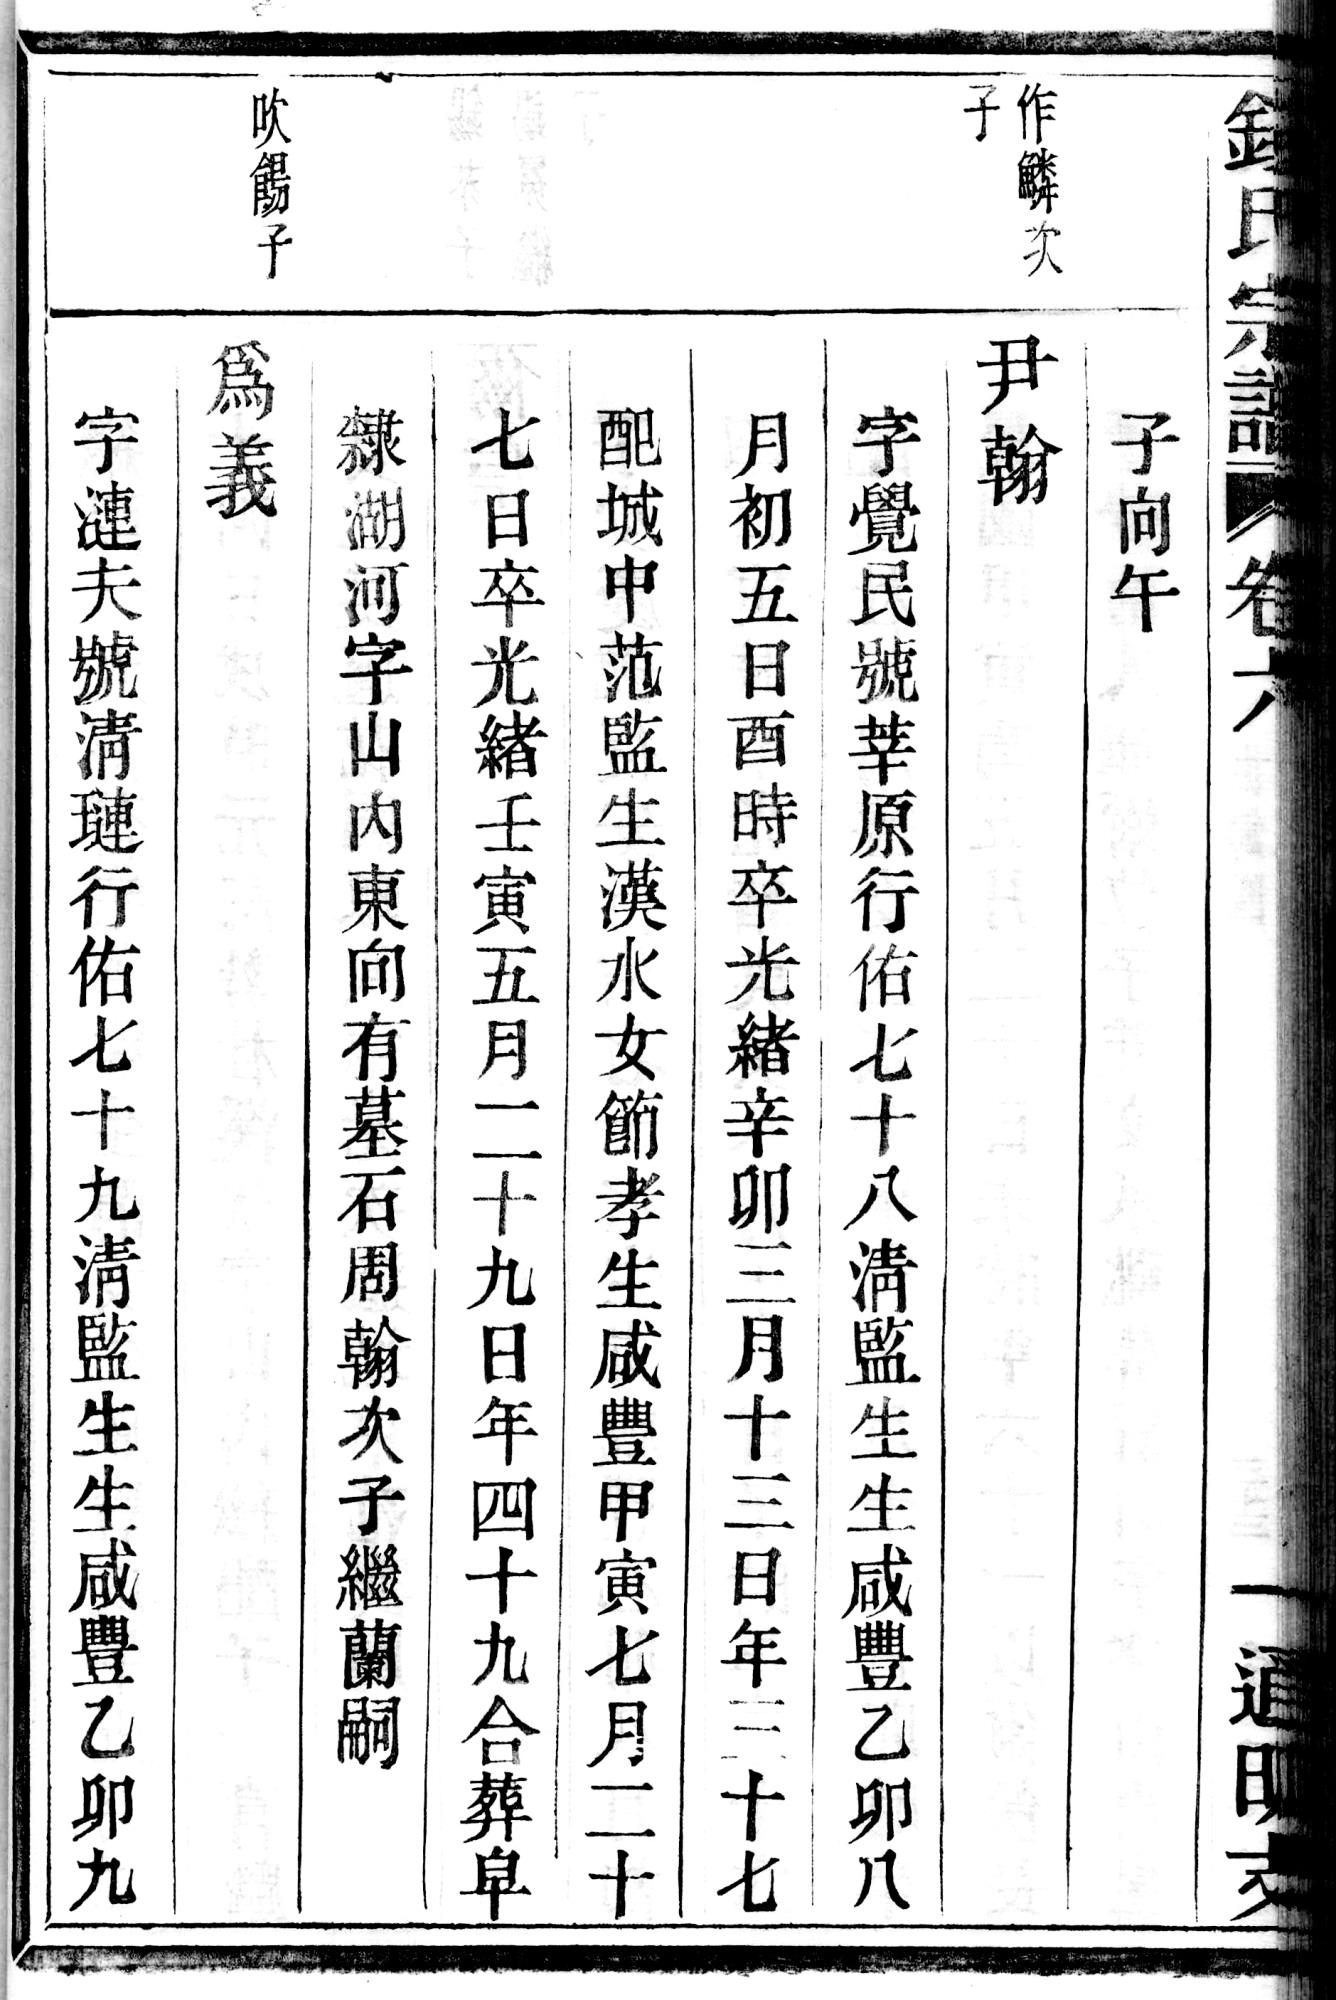 氏宗譜 卷六 一 通明支
子向午
作鱗次
子
尹翰
字覺民號莘原行佑七十八淸監生生咸豐乙卯八
月初五日酉時卒光緖辛卯三月十三日年三十七
配城中范監生漢水女節孝生咸豐甲寅七月二十
七日卒光緖壬寅五月二十九日年四十九合葬皁
隸湖河字山內東向有墓石周翰次子繼蘭嗣
吹餳子
爲義
字漣夫號淸璉行佑七十九淸監生生咸豐乙卯九